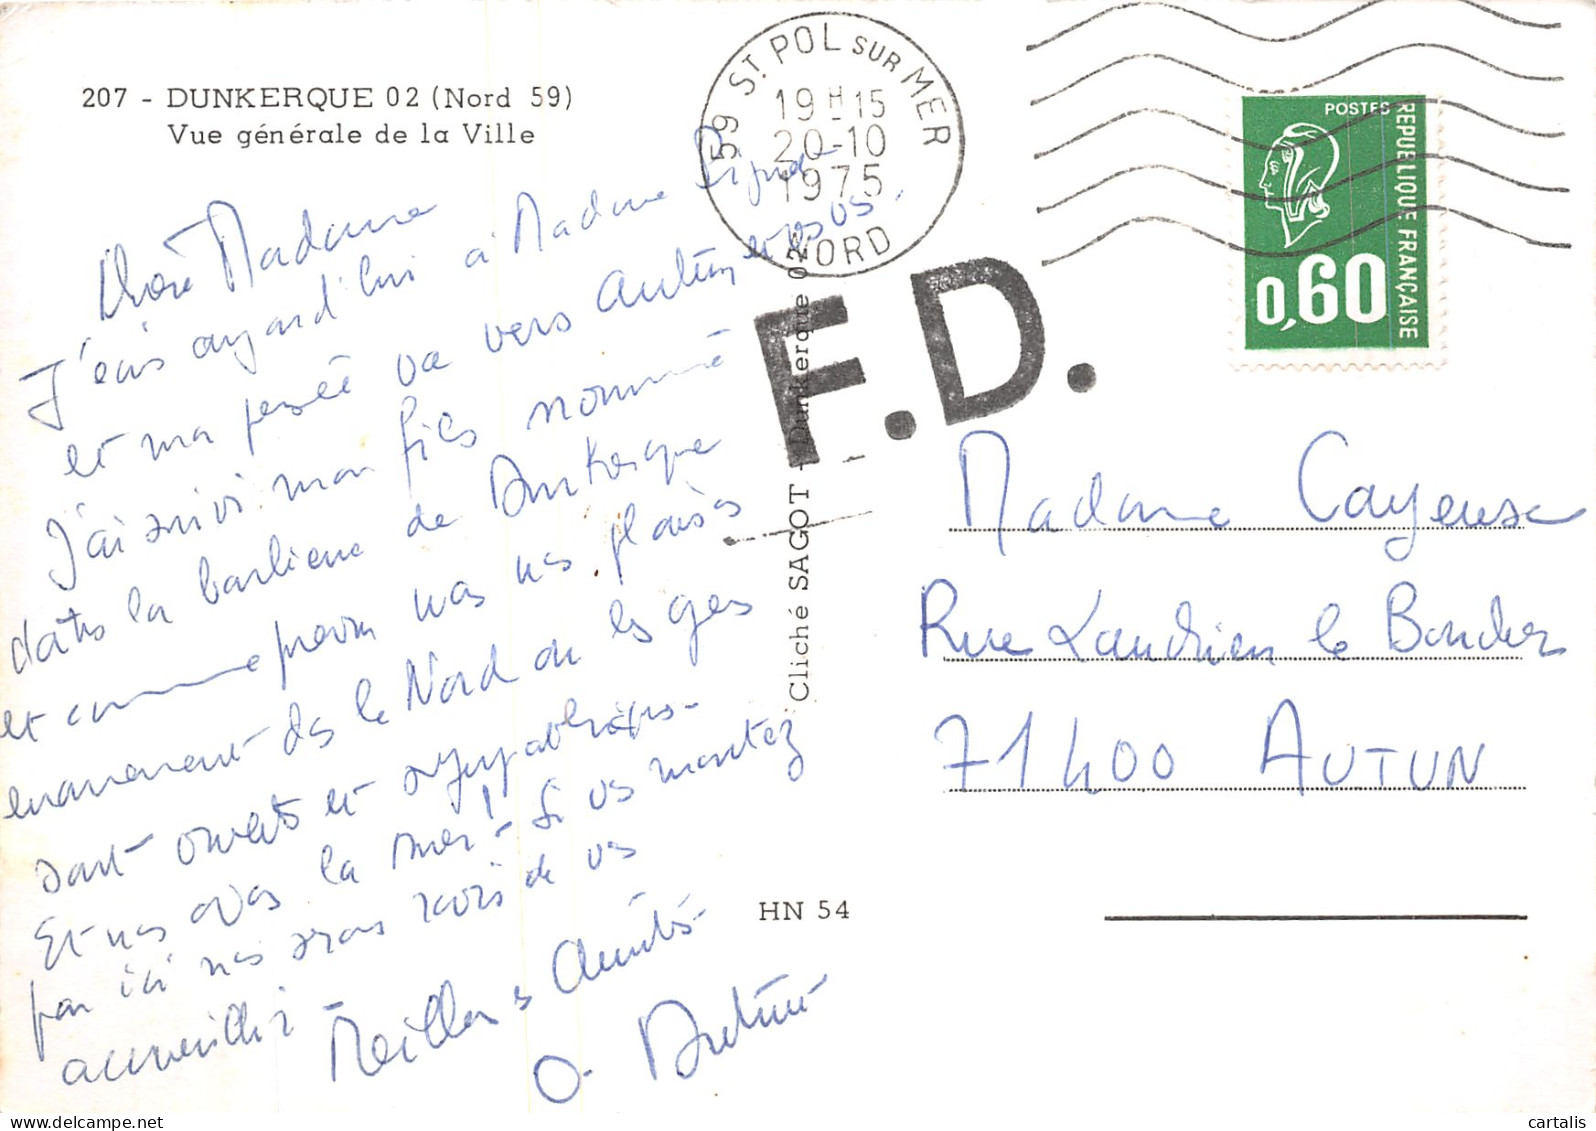 207 - DUNKERQUE 02 (Nord 59)
Vue générale de la Ville
59 ST POL SUR MER
19 H 15
20-10
1975
NORD
POSTES
REPUBLIQUE FRANÇAISE
0,60
F.D.
Cliché SAGOT - Dunkerque 02
Chère Madame
J'écris aujourd'hui à Madame
et ma pensée va vers Autun et vs
J'ai suivi mon fils nommé
dans la banlieue de Dunkerque
et comme nous nous plaisons
énormément ds le Nord où les gens
sont ouverts et sympathiques -
Et nous avons la mer ! - Si vs montez
par ici nous serons ravis de vs
accueillir -
Meilleures Amitiés
O.
Madame Cayeuse
Rue Landrien le
71400 AUTUN
HN 54
cartalis